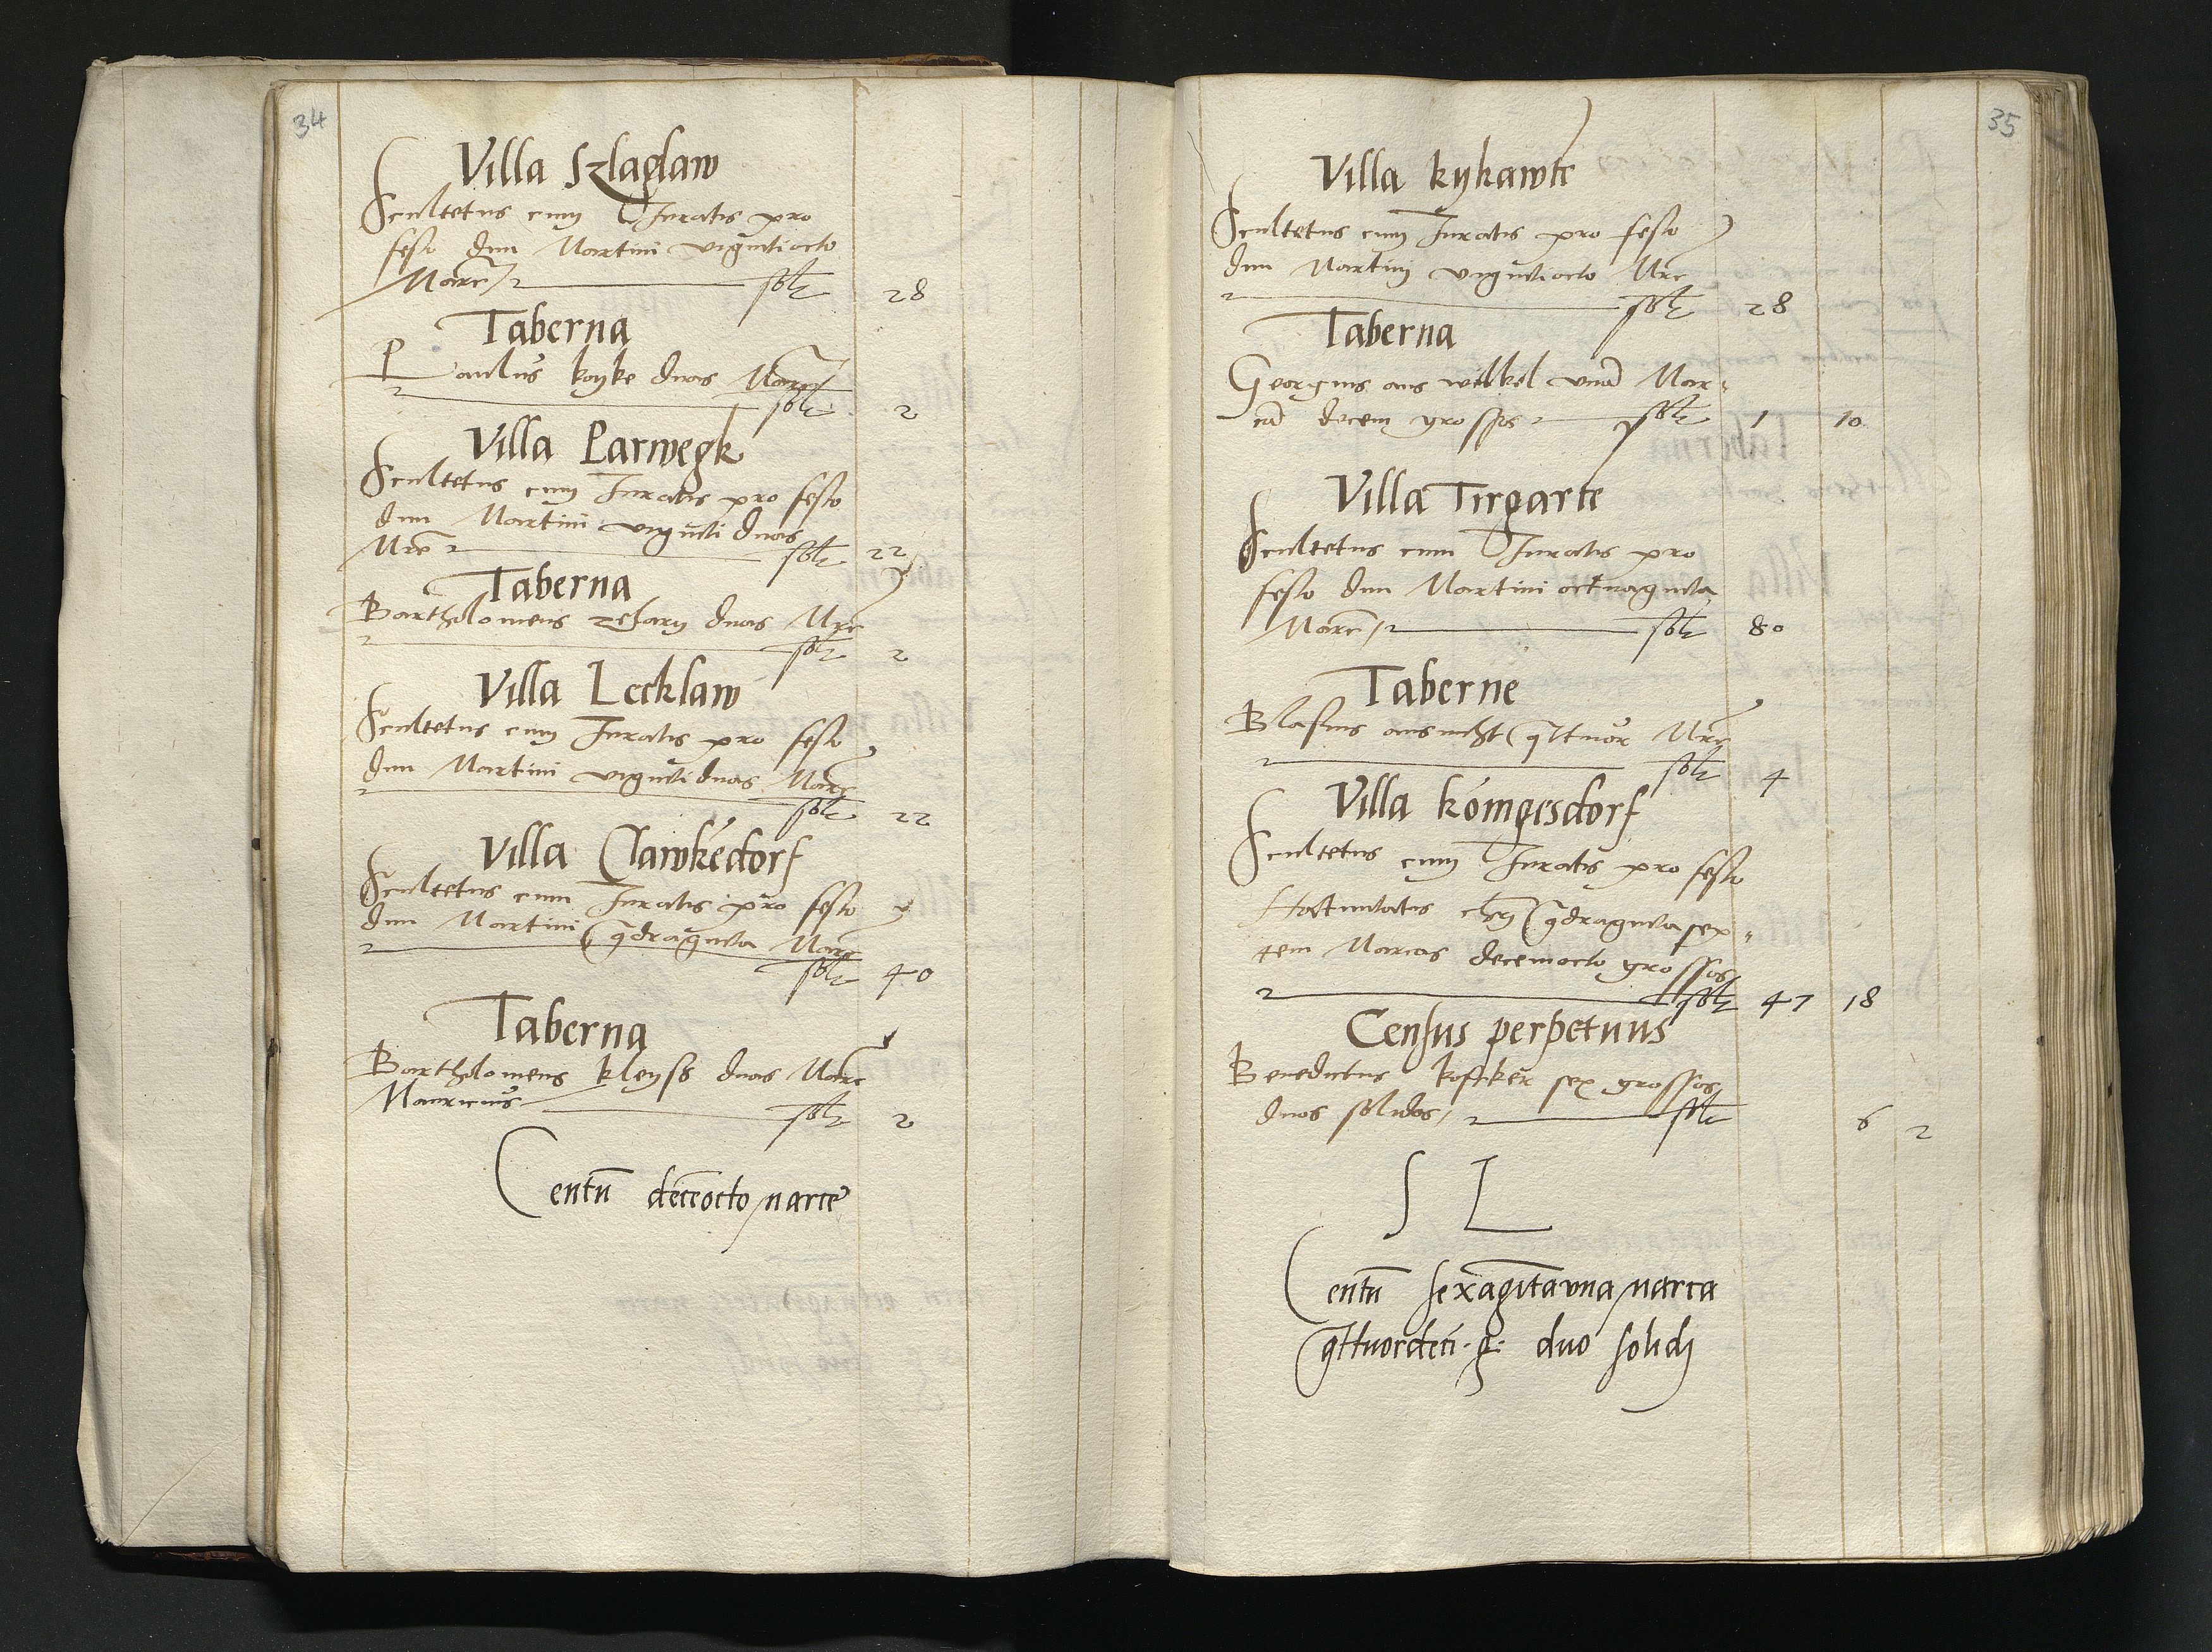 34
Villa Szlaglaw
Scultetus cum Juratis pro
festo divi Martini vigintiocto
Marc solt 28
Taberna
Paulus koyke duas Marc
solt 2
Villa Parwegk
Scultetus cum Juratis pro festo
divi Martini viginti duas
Mrc solt 22
Taberna
Bartholomeus duas Mrc
solt 2
Villa Lecklaw
Scultetus cum Juratis pro festo
divi Martini vigintiduas Marc
solt 22
Villa Clawkedorf
Scultetus cum Juratis pro festo
divi Martini qdraginta Marc
solt 40
Taberna
Bartholomeus kleyss duas Marc
Mauricius solt 2
Centu deceocto marce
35
Villa kykawte
Scultetus cum Juratis pro festo
divi Martini vigintiocto Mrc
solt 28
Taberna
Georgius wilkel una Mar-
ca decem grossos solt 1 10
Villa Tirgarte
Scultetus cum Juratis pro
festo divi Martini octuaginta
Marc solt 80
Taberne
Blasius qttuor Mrc
solt 4
Villa konigesdorf
Scultetus cum Juratis pro festo
Natiuitatis qdragintasep-
tem Marcas decemocto grossos
solt 47 18
Census perpetuus
Benedictus sex grossos
duos solidos solt 6 2
S L
Centu sexagitauna marca
qttuordeci g duo solidj